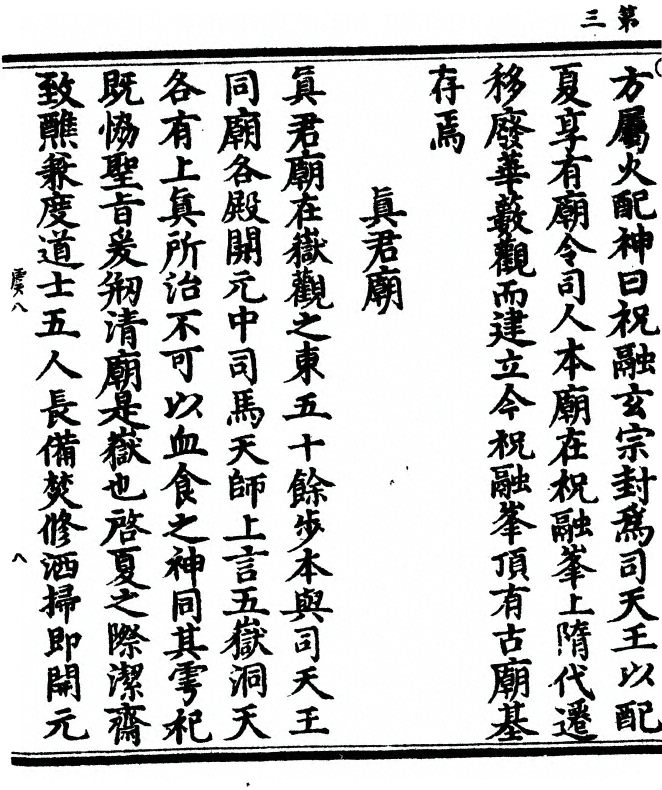 第三
方屬火配神曰祝融玄宗封爲司天王以配
夏享有廟令司人本廟在祝融峯上隋代遷
移廢華藪觀而建立今祝融峯頂有古廟基
存焉
眞君廟
眞君廟在嶽觀之東五十餘步本與司天王
同廟各殿開元中司馬天師上言五嶽洞天
各有上眞所治不可以血食之神同其雩祀
既恊聖旨爰剏清廟是嶽也啓夏之際潔齋
致醮兼度道士五人長備焚修洒掃即開元
虞八
八